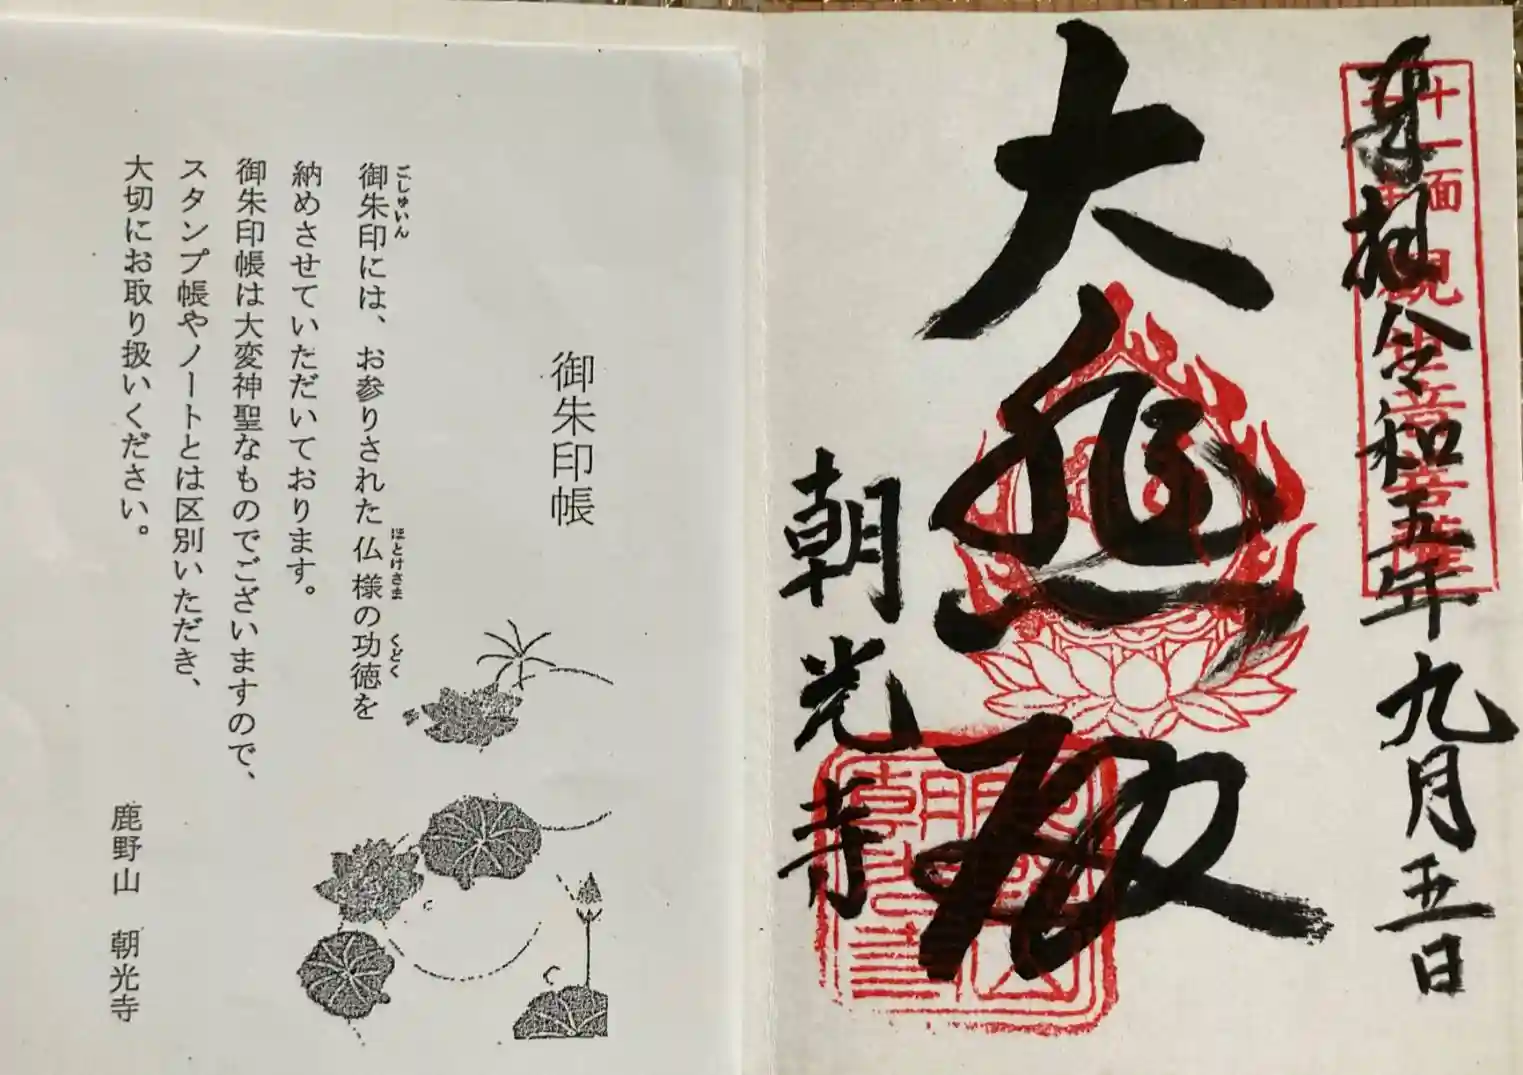 奉拝 令和五年九月五日
十一面観世音菩薩
大悲殿
朝光寺
御朱印帳
御朱印には、お参りされた仏様の功徳を
ごしゅいん
ほとけさま
くどく
納めさせていただいております。
御朱印帳は大変神聖なものでございますので、
スタンプ帳やノートとは区別いただき、
大切にお取り扱いください。
鹿野山 朝光寺